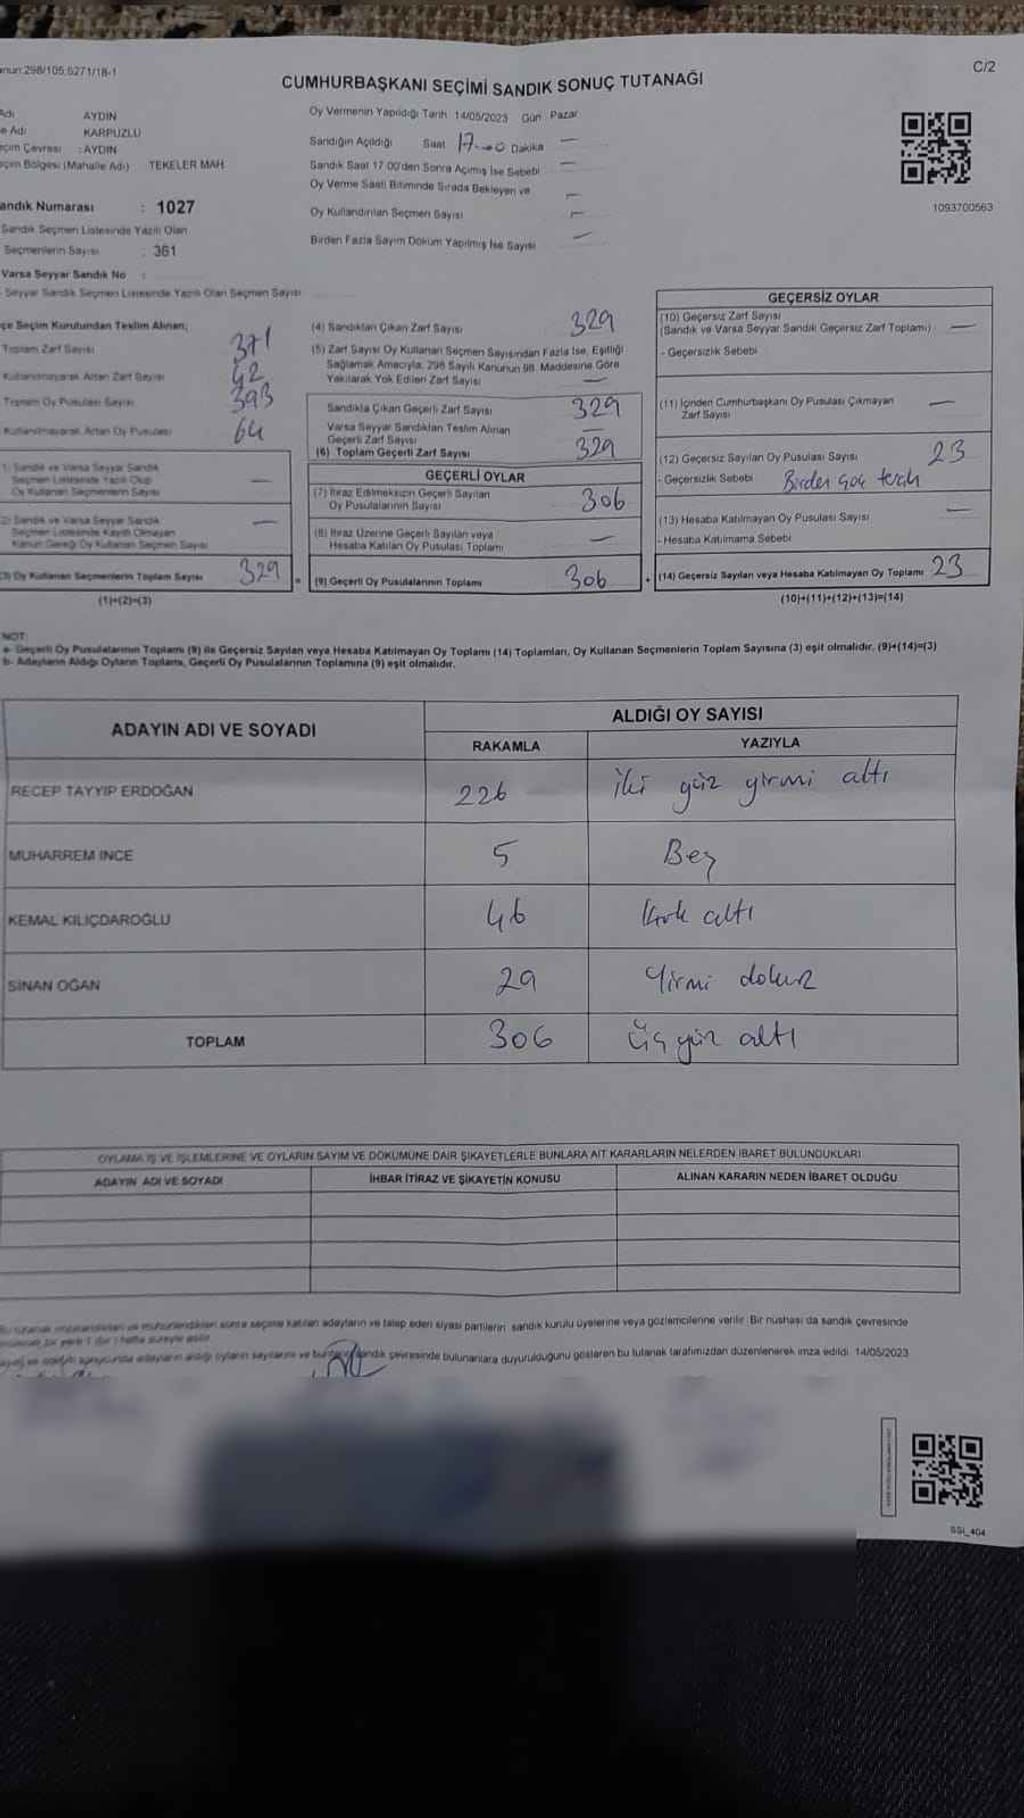 298/105,6271/18-1
C/2
CUMHURBAŞKANI SEÇİMİ SANDIK SONUÇ TUTANAĞI
Adı AYDIN
e Adı KARPUZLU
eçim Çevresi : AYDIN
eçim Bölgesi (Mahalle Adı) TEKELER MAH
andık Numarası : 1027
Sandık Seçmen Listesinde Yazılı Olan
Seçmenlerin Sayısı : 361
Varsa Seyyar Sandık No :
Seyyar Sandık Seçmen Listesinde Yazılı Olan Seçmen Sayısı
Oy Vermenin Yapıldığı Tarih 14/05/2023 Gün Pazar
Sandığın Açıldığı Saat 17 Dakika —
Sandık Saat 17.00'den Sonra Açılmış İse Sebebi —
Oy Verme Saati Bitiminde Sırada Bekleyen ve —
Oy Kullandırılan Seçmen Sayısı —
Birden Fazla Sayım Döküm Yapılmış İse Sayısı —
1093700563
çe Seçim Kurulundan Teslim Alınan;
Toplam Zarf Sayısı 371
Kullanılmayarak Artan Zarf Sayısı 42
Toplam Oy Pusulası Sayısı 393
Kullanılmayarak Artan Oy Pusulası 64
1) Sandık ve Varsa Seyyar Sandık
Seçmen Listesinde Yazılı Olup
Oy Kullanan Seçmenlerin Sayısı —
2) Sandık ve Varsa Seyyar Sandık
Seçmen Listesinde Kayıtlı Olmayan
Kanun Gereği Oy Kullanan Seçmen Sayısı —
(3) Oy Kullanan Seçmenlerin Toplam Sayısı 329 =
(1)+(2)=(3)
(4) Sandıktan Çıkan Zarf Sayısı 329
(5) Zarf Sayısı Oy Kullanan Seçmen Sayısından Fazla İse, Eşitliği
Sağlamak Amacıyla, 298 Sayılı Kanunun 98. Maddesine Göre
Yakılarak Yok Edilen Zarf Sayısı —
Sandıkta Çıkan Geçerli Zarf Sayısı 329
Varsa Seyyar Sandıktan Teslim Alınan
Geçerli Zarf Sayısı —
(6) Toplam Geçerli Zarf Sayısı 329
GEÇERLİ OYLAR
(7) İtiraz Edilmeksizin Geçerli Sayılan
Oy Pusulalarının Sayısı 306
(8) İtiraz Üzerine Geçerli Sayılan veya
Hesaba Katılan Oy Pusulası Toplamı —
(9) Geçerli Oy Pusulalarının Toplamı 306 +
GEÇERSİZ OYLAR
(10) Geçersiz Zarf Sayısı
(Sandık ve Varsa Seyyar Sandık Geçersiz Zarf Toplamı) —
- Geçersizlik Sebebi
(11) İçinden Cumhurbaşkanı Oy Pusulası Çıkmayan
Zarf Sayısı —
(12) Geçersiz Sayılan Oy Pusulası Sayısı 23
- Geçersizlik Sebebi
(13) Hesaba Katılmayan Oy Pusulası Sayısı —
- Hesaba Katılmama Sebebi
(14) Geçersiz Sayılan veya Hesaba Katılmayan Oy Toplamı 23
(10)+(11)+(12)+(13)=(14)
NOT:
a- Geçerli Oy Pusulalarının Toplamı (9) ile Geçersiz Sayılan veya Hesaba Katılmayan Oy Toplamı (14) Toplamları, Oy Kullanan Seçmenlerin Toplam Sayısına (3) eşit olmalıdır. (9)+(14)=(3)
b- Adayların Aldığı Oyların Toplamı, Geçerli Oy Pusulalarının Toplamına (9) eşit olmalıdır.
ADAYIN ADI VE SOYADI ALDIĞI OY SAYISI
RAKAMLA YAZIYLA
RECEP TAYYIP ERDOĞAN 226 iki yüz yirmi altı
MUHARREM İNCE 5 Beş
KEMAL KILIÇDAROĞLU 46 Kırk altı
SİNAN OĞAN 29 Yirmi dokuz
TOPLAM 306 Üç yüz altı
OYLAMA İŞ VE İŞLEMLERİNE VE OYLARIN SAYIM VE DÖKÜMÜNE DAİR ŞİKAYETLERLE BUNLARA AİT KARARLARIN NELERDEN İBARET BULUNDUKLARI
ADAYIN ADI VE SOYADI İHBAR İTİRAZ VE ŞİKAYETİN KONUSU ALINAN KARARIN NEDEN İBARET OLDUĞU
sonra seçime katılan adayların ve talep eden siyasi partilerin sandık kurulu üyelerine veya gözlemcilerine verilir. Bir nüshası da sandık çevresinde
adayların aldığı oyların sayılarını ve sandık çevresinde bulunanlara duyurulduğunu gösteren bu tutanak tarafımızdan düzenlenerek imza edildi. 14/05/2023
SSI_404